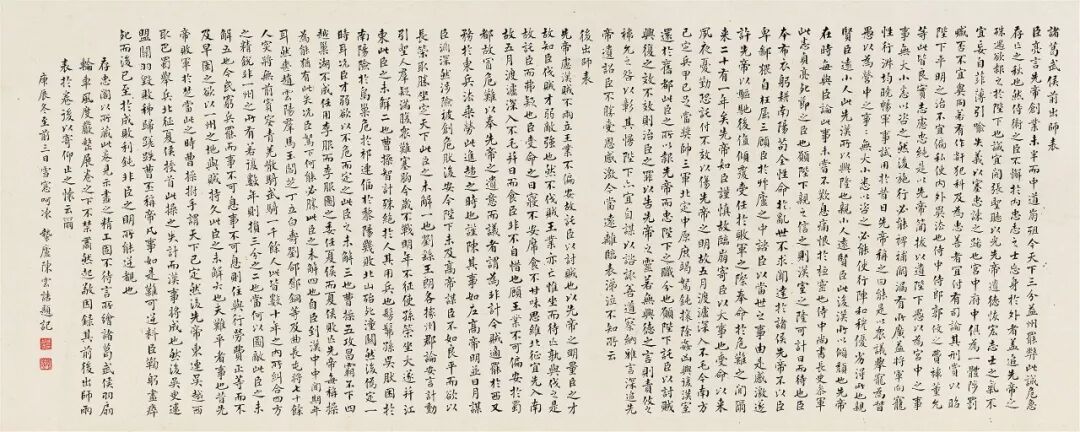 諸葛武侯前出師表
臣亮言先帝創業未半而中道崩殂今天下三分益州罷弊此誠危急
存亡之秋也然侍衛之臣不懈於內忠志之士忘身於外者蓋追先帝之
殊遇欲報之於陛下也誠宜開張聖聽以光先帝遺德恢宏志士之氣不
宜妄自菲薄引喻失義以塞忠諫之路也宮中府中俱為一體陟罰
臧否不宜異同若有作奸犯科及為忠善者宜付有司論其刑賞以昭
陛下平明之治不宜偏私使內外異法也侍中侍郎郭攸之費禕董允
等此皆良實志慮忠純是以先帝簡拔以遺陛下愚以為宮中之事
事無大小悉以咨之然後施行必能裨補闕漏有所廣益將軍向寵
性行淑均曉暢軍事試用於昔日先帝稱之曰能是以眾議舉寵為督
愚以為營中之事事無大小悉以咨之必能使行陣和穆優劣得所也親
賢臣遠小人此先漢所以興隆也親小人遠賢臣此後漢所以傾頹也先帝
在時每與臣論此事未嘗不歎息痛恨於桓靈也侍中尚書長史參軍
此悉貞亮死節之臣也願陛下親之信之則漢室之隆可計日而待也臣
本布衣躬耕南陽苟全性命於亂世不求聞達於諸侯先帝不以臣
卑鄙猥自枉屈三顧臣於草廬之中諮臣以當世之事由是感激遂
許先帝以驅馳後值傾覆受任於敗軍之際奉命於危難之間爾
來二十有一年矣先帝知臣謹慎故臨崩寄臣以大事也受命以來
夙夜憂勤恐託付不效以傷先帝之明故五月渡瀘深入不毛今南方
已定兵甲已足當獎帥三軍北定中原庶竭駑鈍攘除姦凶興復漢室
還於舊都此臣之所以報先帝而忠陛下之職分也願陛下託臣以討賊
興復之效不效則治臣之罪以告先帝之靈若無興德之言則責攸之
禕允之咎以彰其慢陛下亦宜自謀以諮諏善道察納雅言深追先
帝遺詔臣不勝受恩感激今當遠離臨表涕泣不知所云
後出師表
先帝慮漢賊不兩立王業不偏安故託臣以討賊也以先帝之明量臣之才
故知臣伐賊才弱敵強也然不伐賊王業亦亡惟坐而待亡孰與伐之是
故託臣而弗疑也臣受命之日寢不安席食不甘味思惟北征宜先入南
故五月渡瀘深入不毛并日而食臣非不自惜也顧王業不可偏安於蜀
都故冒危難以奉先帝之遺意而議者謂為非計今賊適疲於西又
務於東兵法乘勞此進趨之時也謹陳其事如左高帝明並日月謀
臣淵深然涉險被創危然後安今陛下未及高帝謀臣不如良平而欲以
長策取勝坐定天下此臣之未解一也劉繇王朗各據州郡論安言計動
引聖人羣疑滿腹眾難塞胸今歲不戰明年不征使孫策坐大遂并江
東此臣之未解二也曹操智計殊絕於人其用兵也髣髴孫吳然困於
南陽險於烏巢危於祁連偪於黎陽幾敗北山殆死潼關然後偽定一
時耳況臣才弱欲以不危而定之此臣之未解三也曹操五攻昌霸不下四
越巢湖不成任用李服而李服圖之委任夏侯而夏侯敗亡先帝每稱操
為能猶有此失況臣駑下何能必勝此臣之未解四也自臣到漢中中間期年
耳然喪趙雲陽羣馬玉閻芝丁立白壽劉郃鄧銅等及曲長屯將七十餘
人突將無前賨叟青羌散騎武騎一千餘人此皆數十年之內所糾合四方
之精銳非一州之所有若復數年則損三分之二也當何以圖敵此臣之未
解五也今民窮兵疲而事不可息事不可息則住與行勞費正等而不
及早圖之欲以一州之地與賊持久此臣之未解六也夫難平者事也昔先
帝敗軍於楚當此時曹操拊手謂天下已定然後先帝東連吳越西
取巴蜀舉兵北征夏侯授首此操之失計而漢事將成也然後吳更違
盟關羽毀敗秭歸蹉跌曹丕稱帝凡事如是難可逆料臣鞠躬盡瘁
死而後已至於成敗利鈍非臣之明所能逆覩也
存忠 所藏此卷見示畫之精工固不待言所繪諸葛武侯羽扇
輪車風度嚴整展卷之下不禁肅然起敬因錄其前後出師兩
表於卷後以寄仰止之懷云爾
庚辰冬至前三日雪窗呵凍 聱廬陳雲誥題記